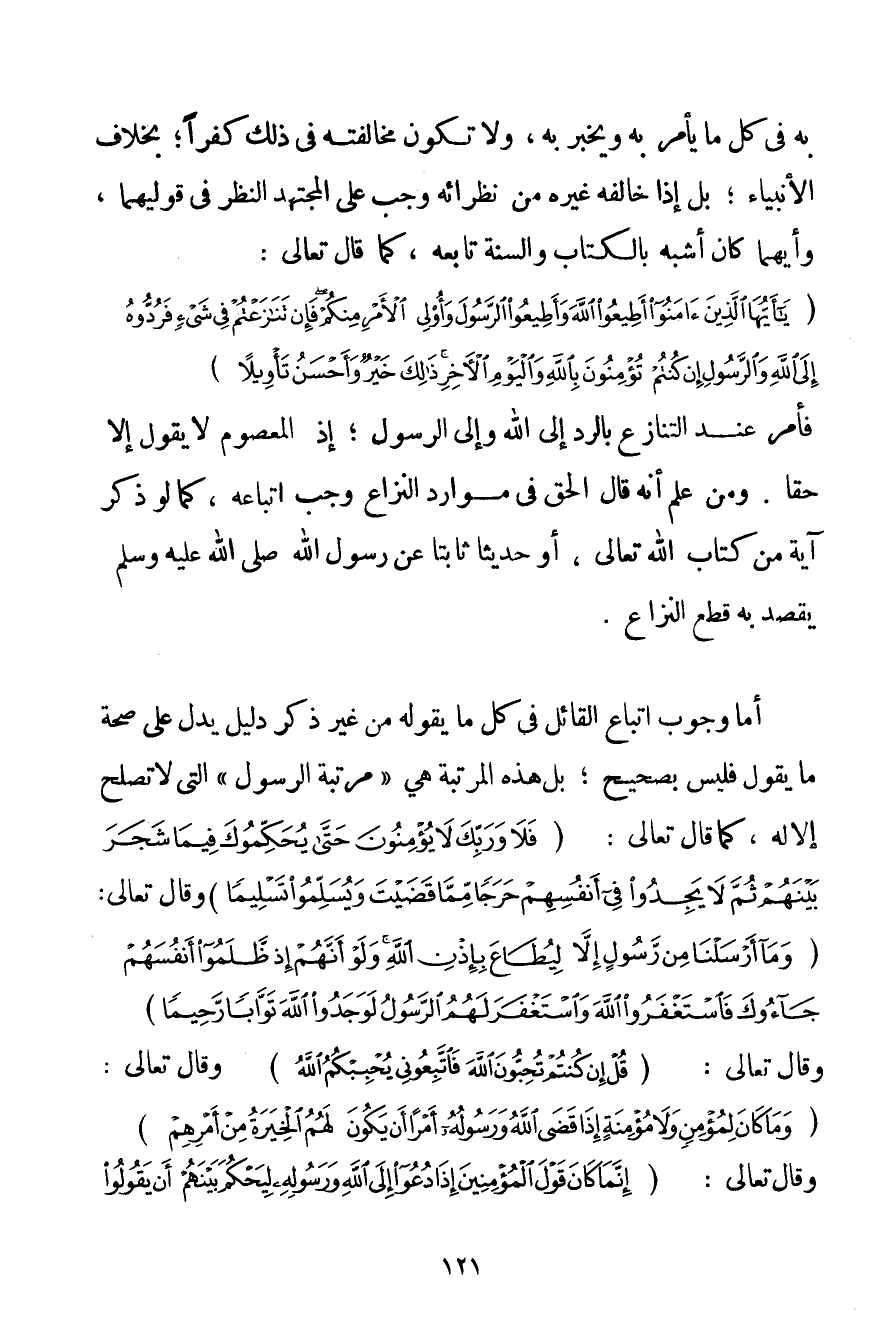 به فى كل ما يأمر به ويخبر به ، ولا تكون مخالفته فى ذلك كفراً ؛ بخلاف
الأنبياء ؛ بل إذا خالفه غيره من نظرائه وجب على المجتهد النظر فى قوليهما ،
وأيهما كان أشبه بالكتاب والسنة تابعه ، كما قال تعالى :
( يَٰٓأَيُّهَا ٱلَّذِينَ ءَامَنُوٓا۟ أَطِيعُوا۟ ٱللَّهَ وَأَطِيعُوا۟ ٱلرَّسُولَ وَأُو۟لِى ٱلْأَمْرِ مِنكُمْ ۖ فَإِن تَنَٰزَعْتُمْ فِى شَىْءٍ فَرُدُّوهُ
إِلَى ٱللَّهِ وَٱلرَّسُولِ إِن كُنتُمْ تُؤْمِنُونَ بِٱللَّهِ وَٱلْيَوْمِ ٱلْأَخِرِ ۚ ذَٰلِكَ خَيْرٌ وَأَحْسَنُ تَأْوِيلًا )
فأمر عند التنازع بالرد إلى الله وإلى الرسول ؛ إذ المعصوم لا يقول إلا
حقا . ومن علم أنه قال الحق فى موارد النزاع وجب اتباعه ، كما لو ذكر
آية من كتاب الله تعالى ، أو حديثا ثابتا عن رسول الله صلى الله عليه وسلم
يقصد به قطع النزاع .
أما وجوب اتباع القائل فى كل ما يقوله من غير ذكر دليل يدل على صحة
ما يقول فليس بصحيح ؛ بل هذه المرتبة هي « مرتبة الرسول » التى لا تصلح
إلا له ، كما قال تعالى : ( فَلَا وَرَبِّكَ لَا يُؤْمِنُونَ حَتَّىٰ يُحَكِّمُوكَ فِيمَا شَجَرَ
بَيْنَهُمْ ثُمَّ لَا يَجِدُوا۟ فِىٓ أَنفُسِهِمْ حَرَجًا مِّمَّا قَضَيْتَ وَيُسَلِّمُوا۟ تَسْلِيمًا ) وقال تعالى :
( وَمَآ أَرْسَلْنَا مِن رَّسُولٍ إِلَّا لِيُطَاعَ بِإِذْنِ ٱللَّهِ ۚ وَلَوْ أَنَّهُمْ إِذ ظَّلَمُوٓا۟ أَنفُسَهُمْ
جَآءُوكَ فَٱسْتَغْفَرُوا۟ ٱللَّهَ وَٱسْتَغْفَرَ لَهُمُ ٱلرَّسُولُ لَوَجَدُوا۟ ٱللَّهَ تَوَّابًا رَّحِيمًا )
وقال تعالى : ( قُلْ إِن كُنتُمْ تُحِبُّونَ ٱللَّهَ فَٱتَّبِعُونِى يُحْبِبْكُمُ ٱللَّهُ ) وقال تعالى :
( وَمَا كَانَ لِمُؤْمِنٍ وَلَا مُؤْمِنَةٍ إِذَا قَضَى ٱللَّهُ وَرَسُولُهُۥٓ أَمْرًا أَن يَكُونَ لَهُمُ ٱلْخِيَرَةُ مِنْ أَمْرِهِمْ )
وقال تعالى : ( إِنَّمَا كَانَ قَوْلَ ٱلْمُؤْمِنِينَ إِذَا دُعُوٓا۟ إِلَى ٱللَّهِ وَرَسُولِهِۦ لِيَحْكُمَ بَيْنَهُمْ أَن يَقُولُوا۟
١٢١